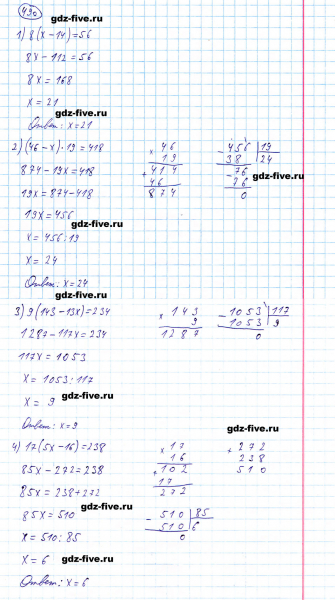 490
gdz-five.ru
1) 8(x-14)=56
8x-112=56
gdz-five.ru
8x=168
x=21
gdz-five.ru
Ответ: x=21
2) (46-x)·19=418
874-19x=418
19x=874-418
19x=456
gdz-five.ru
x=456:19
x=24
Ответ: x=24
× 46
19
+ 414
46
874
- 456 | 19
38 | 24
- 76
76
0
gdz-five.ru
gdz-five.ru
3) 9(143-13x)=234
1287-117x=234
117x=1053
x=1053:117
x=9
gdz-five.ru
Ответ: x=9
× 143
9
1287
- 1053 | 117
1053 | 9
0
gdz-five.ru
4) 17(5x-16)=238
85x-272=238
85x=238+272
gdz-five.ru
85x=510
x=510:85
x=6
gdz-five.ru
Ответ: x=6
× 17
16
+ 102
17
272
+ 272
238
510
- 510 | 85
510 | 6
0